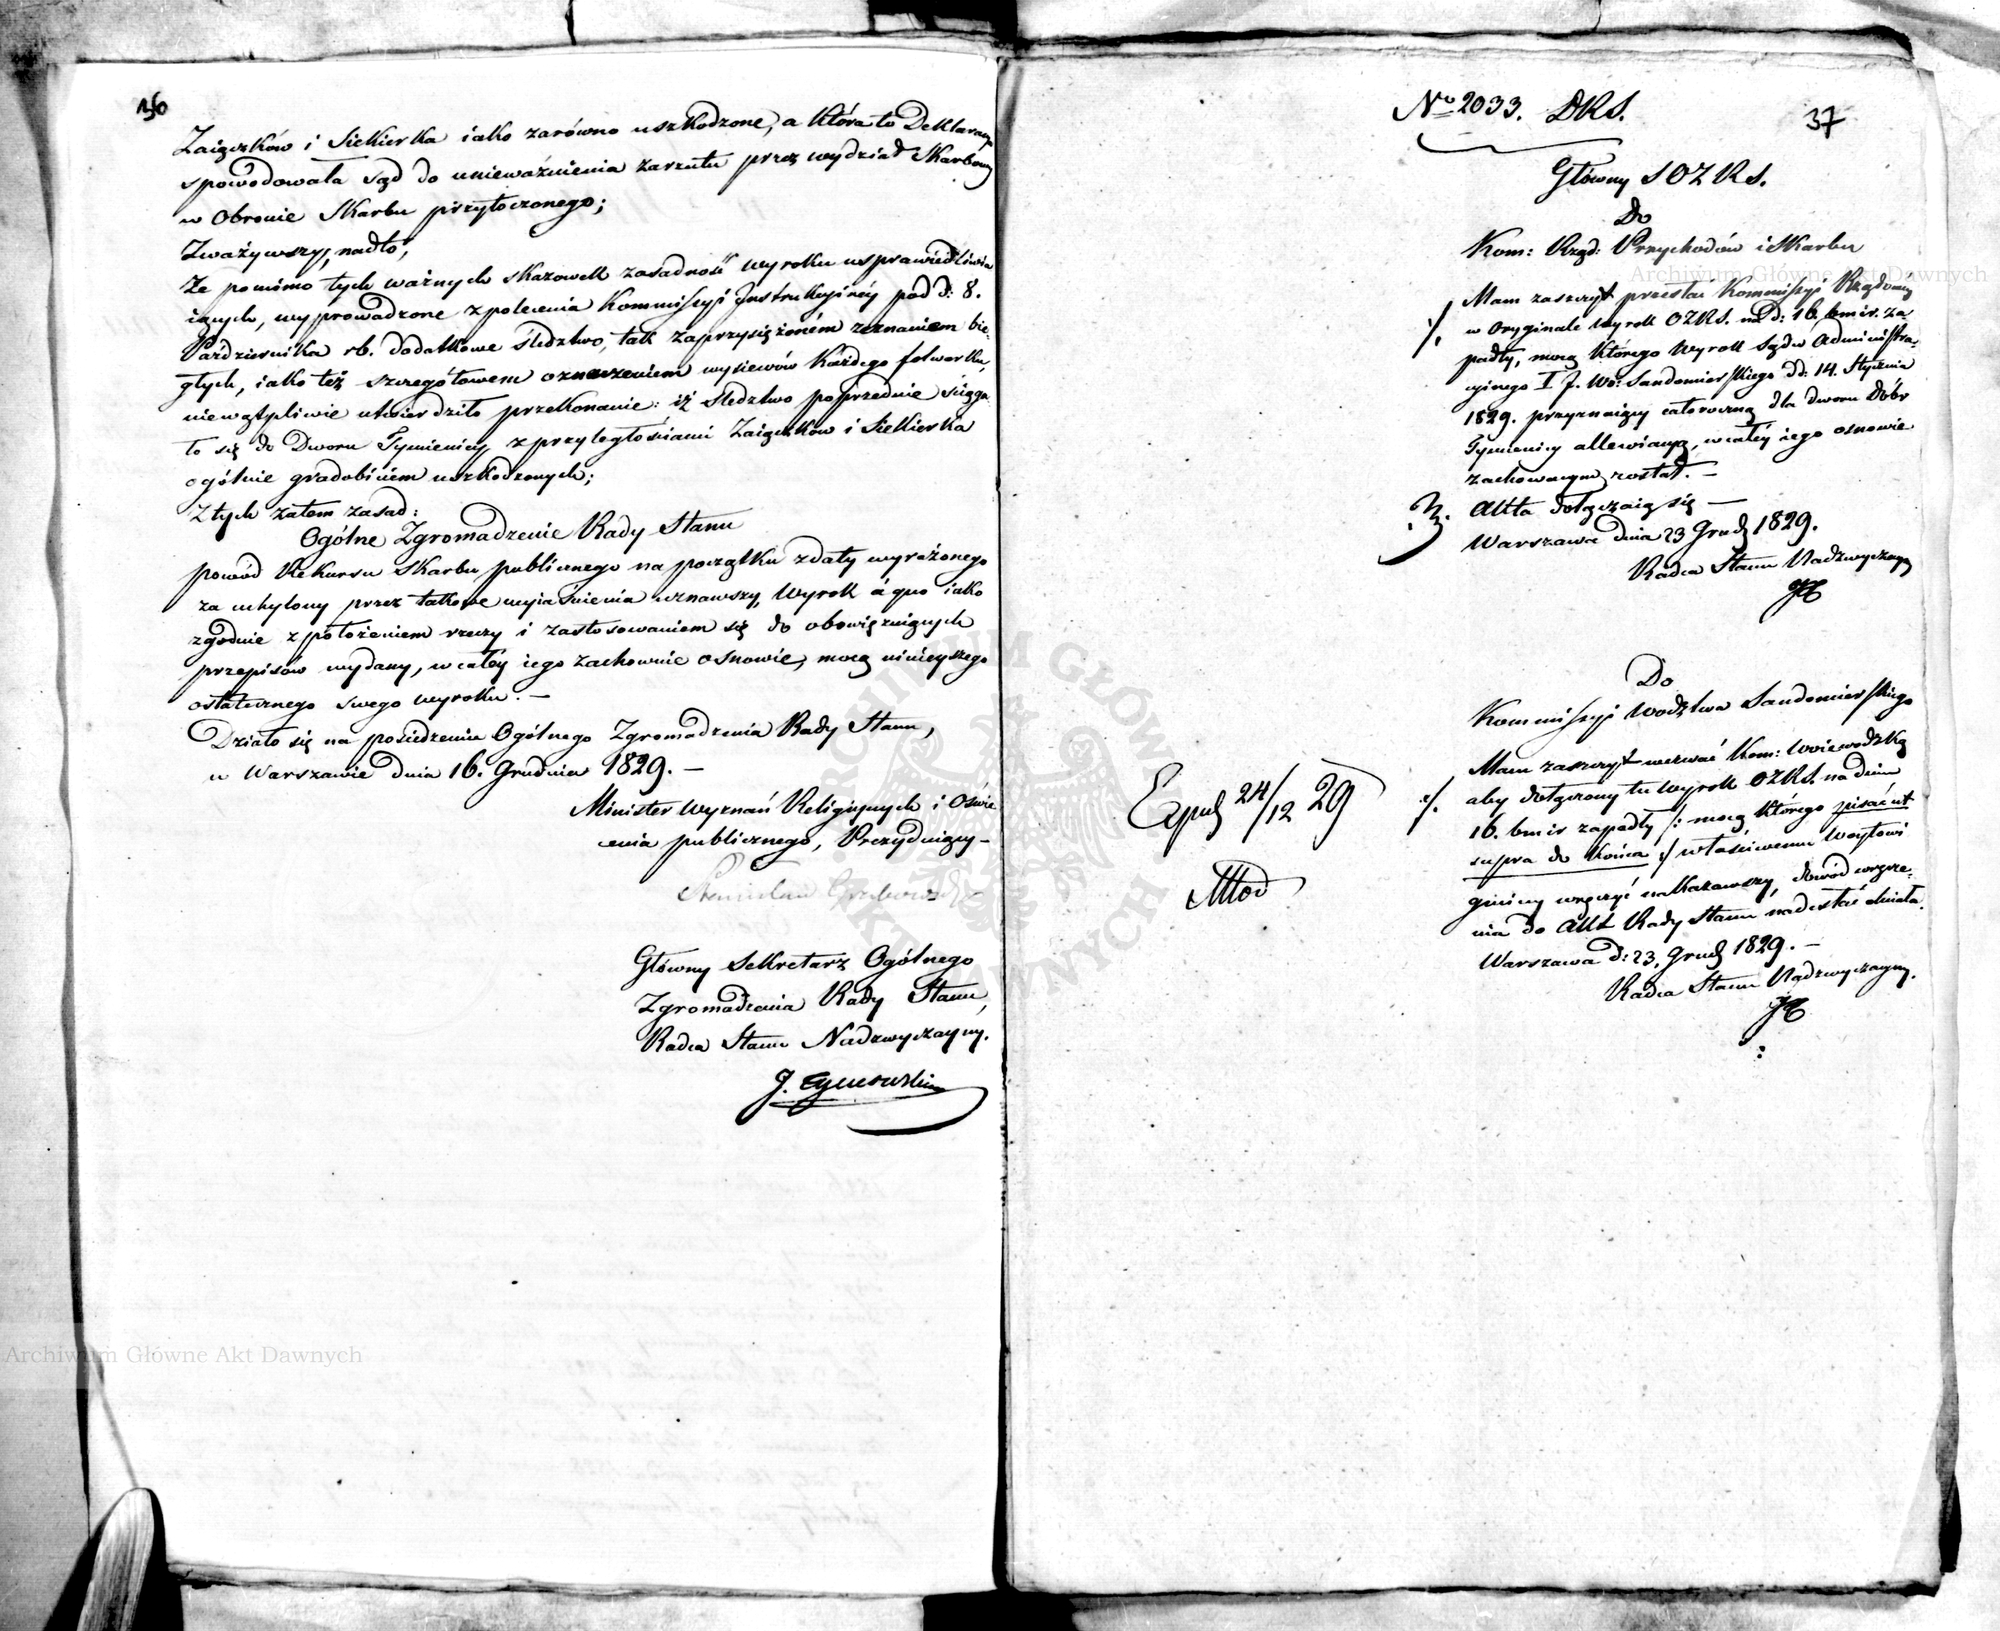 36
Zaiączków i Siekierka iako zarówno uszkodzone, a która to Deklaracya
spowodowała Sąd do unieważnienia zarzutu przez wydział Skarbowy
w Obronie Skarbu przytoczonego;
Zważywszy, nadto,
Ze pomimo tych ważnych skazowek zasadność wyroku usprawiedliwia
iących, wyprowadzone z polecenia Kommissyi Instrukcyinéy pod d: 8.
Października rb. dodatkowe śledztwo, tak zaprzysiężoném zeznaniem bie-
głych, iako też szczegółowem oznaczeniem wysiewów każdego folwarku,
niewątpliwie utwierdziło przekonanie: iż śledztwo poprzednie ściąga-
ło się do Dworu Tymienicy z przyległościami Zaiączków i Siekierka
ogólnie gradobiciem uszkodzonych;
Z tych zatem zasad:
Ogólne Zgromadzenie Rady Stanu
powód Rekursu Skarbu publicznego na początku zdały wyrażonego
za uchylony przez takowe wyiaśnienia uznawszy, Wyrok à quo iako
zgodnie z położeniem rzeczy i zastosowaniem się do obowiązuiących
przepisów wydany, w całéy iego zachownie osnowie, mocą ninieyszego
ostatecznego swego wyroku. —
Działo się na posiedzeniu Ogólnego Zgromadzenia Rady Stanu,
w Warszawie dnia 16. Grudnia 1829. —
Minister Wyznań Religiynych i Oświe
cenia publicznego, Prezyduiący —
Stanisław Grabowski
Główny Sekretarz Ogólnego
Zgromadzenia Rady Stanu,
Radca Stanu Nadzwyczayny.
No 2033. DRS.
37
Główny SOZRS.
Do
Kom: Rząd: Przychodów i Skarbu
Mam zaszczyt przesłać Kommissyi Rządowey
w oryginale wyrok OZRS. na d: 16. bm ir. za-
padły, mocą którego Wyrok Sądu Administra-
cyinego I J. Wo: Sandomierskiego dd: 14. Stycznia
1829. przyznaiący całoroczną dla dworu Dóbr
Tymienicy allewiacyą, w całéy iego osnowie
zachowanym został. —
Akta dołączaią się —
Warszawa dnia 23 Grud 1829.
Radca Stanu Nadzwyczayny
Do
Kommissyi Wodztwa Sandomierskiego
Mam zaszczyt wezwać Kom: Woiewodzką
aby dołączony tu Wyrok OZRS. na dniu
16. bm ir zapadły /: mocą którego pisać ut
supra do końca :/ właściwemu Woytowi
gminy wręczyć nakazawszy, dowód wręcze-
nia do Akt Rady Stanu nadesłać chciała.
Warszawa d: 23. Grud 1829. —
Radca Stanu Nadzwyczayny.
Exped 24/12 29
Archiwum Główne Akt Dawnych
Archiwum Główne Akt Dawnych